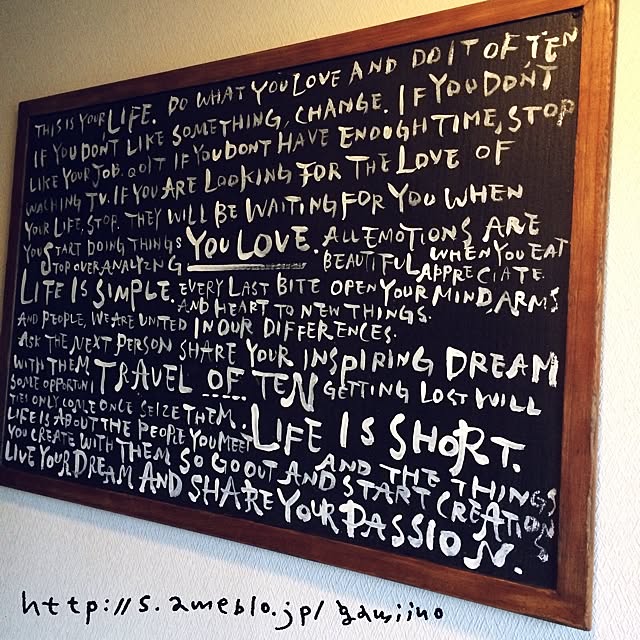 THIS IS YOUR LIFE. DO WHAT YOU LOVE AND DO IT OF TEN
IF YOU DONT LIKE SOMETHING, CHANGE. IF YOU DON'T
LIKE YOUR JOB. QOIT IF YOU DONT HAVE ENOUGH TIME, STOP
WACHING TV. IF YOU ARE LOOKING FOR THE LOVE OF
YOUR LIFE, STOP. THEY WILL BE WAITING FOR YOU WHEN
YOU START DOING THINGS YOU LOVE. ALL EMOTIONS ARE
STOP OVER ANALYZNG BEAUTIFUL, WHEN YOU EAT
LIFE IS SIMPLE. EVERY LAST BITE OPEN YOUR MIND, ARMS
APPRECIATE.
AND HEART TO NEW THINGS.
AND PEOPLE, WE ARE UNITED IN OUR DIFFERENCES.
ASK THE NEXT PERSON SHARE YOUR INSPIRING DREAM
WITH THEM TRAVEL OF TEN GETTING LOST WILL
SOME OPPORTUNI
TIES ONLY COME ONCE SEIZE THEM.
LIFE IS ABOUT THE PEOPLE YOU MEET LIFE IS SHORT.
YOU CREATE WITH THEM SO GO OUT AND START CREATIONS
AND THE THINGS
LIVE YOUR DREAM AND SHARE YOUR PASSION.
http://s.ameblo.jp/gamiino